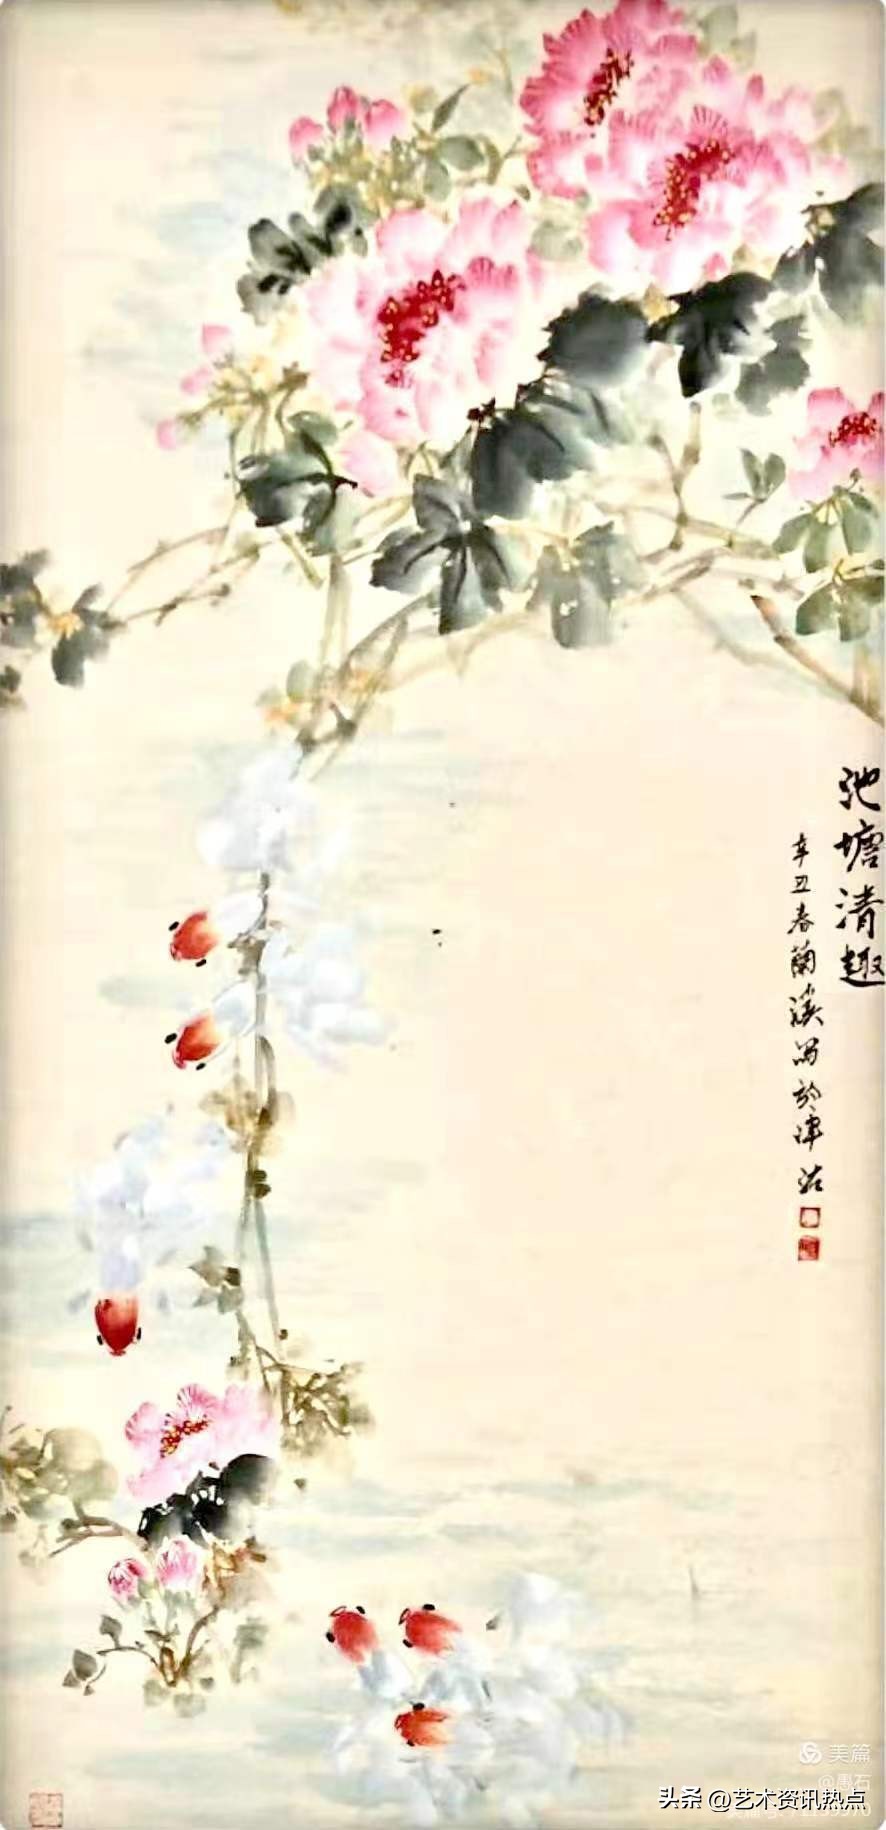 池塘清趣
辛丑春蘭溪寫於津沽
美篇
@愚石
头条 @艺术资讯热点